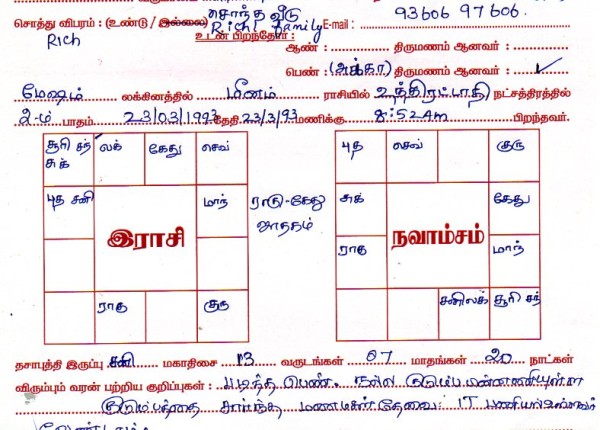 சொந்த வீடு
சொத்து விபரம் : (உண்டு / இல்லை) Rich family E-mail : 93606 97606.
Rich உடன் பிறந்தோர் :
ஆண் : திருமணம் ஆனவர் :
பெண் : (அக்கா) திருமணம் ஆனவர் : ✓
மேஷம் லக்கினத்தில் மீனம் ராசியில் உத்திரட்டாதி நட்சத்திரத்தில்
2-ம் பாதம் 23/03/1993 தேதி 23/3/93 மணிக்கு 8:52 Am பிறந்தவர்.
சூரி சந் சுக் லக் கேது செவ்
புத சனி மாந்
இராசி
ராகு குரு
ராகு-கேது ஜாதகம்
புத செவ் குரு
சுக் கேது
ராகு மாந்
நவாம்சம்
சனி லக் சூரி சந்
தசாபுத்தி இருப்பு சனி மகாதிசை 13 வருடங்கள் 07 மாதங்கள் 20 நாட்கள்
விரும்பும் வரன் பற்றிய குறிப்புகள் : படித்த பெண். நல்ல குடும்ப
குடும்பத்தை சார்ந்த மணமகள் தேவை. IT